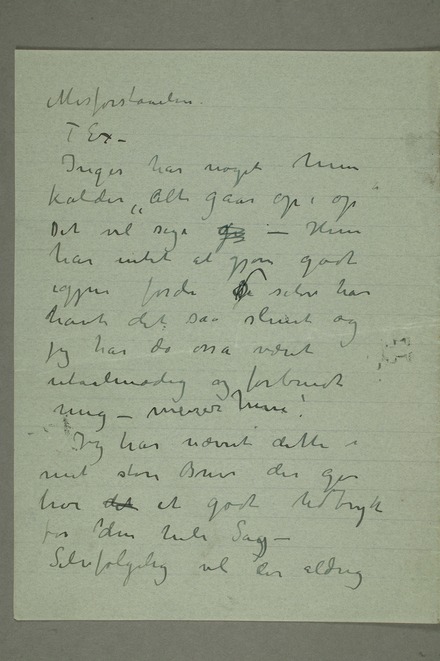 Misforståelsen.
T Ex –
Inger har noget hun
kalder „Alt gaar op i op"
Det vil sige – Hun
har intet at gjøre godt
igjen fordi selv har
havt det saa slemt og
jeg har da ossa været
utaalmodig og forbandt
mig – mener hun!
Jeg har nævnt dette i
mit store Brev der gir
hvor det et godt Udtryk
for den hele Sag –
Selvfølgelig vil der aldrig